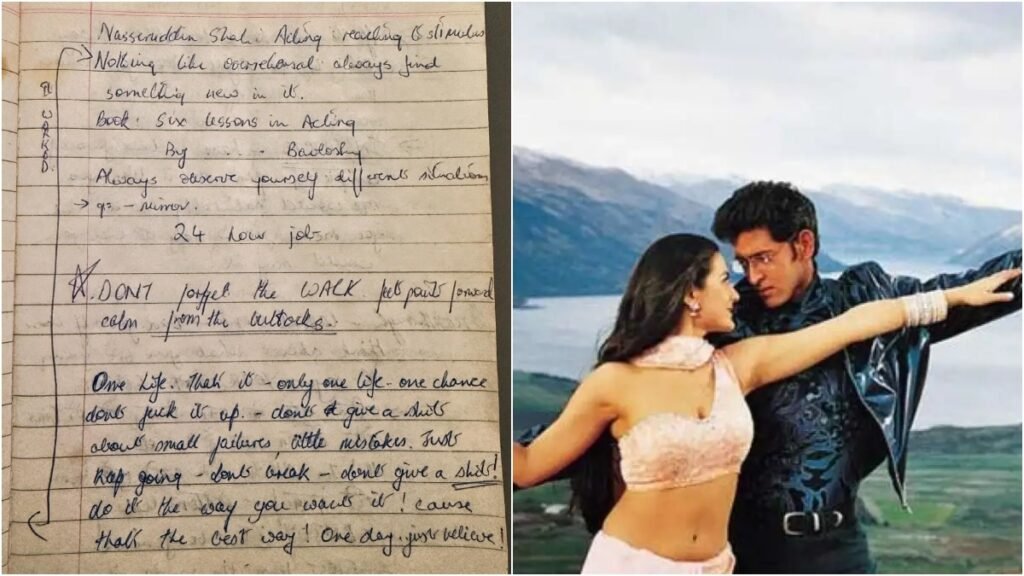 Nasseruddin Shah: Acting: reacting to stimulus
Nothing like overrehearsal always find
something new in it.
Book: Six lessons in Acting
By . . -
Always observe yourself: different situations
→ - mirror.
24 hour job
DONT forget the WALK feet point forward
calm from the buttocks.
One Life. that it - only one life - one chance
dont fuck it up. - dont give a shit
about small failures, little mistakes. Just
keep going - dont break - dont give a shit!
do it the way you want it! cause
thats the best way! One day. just believe!